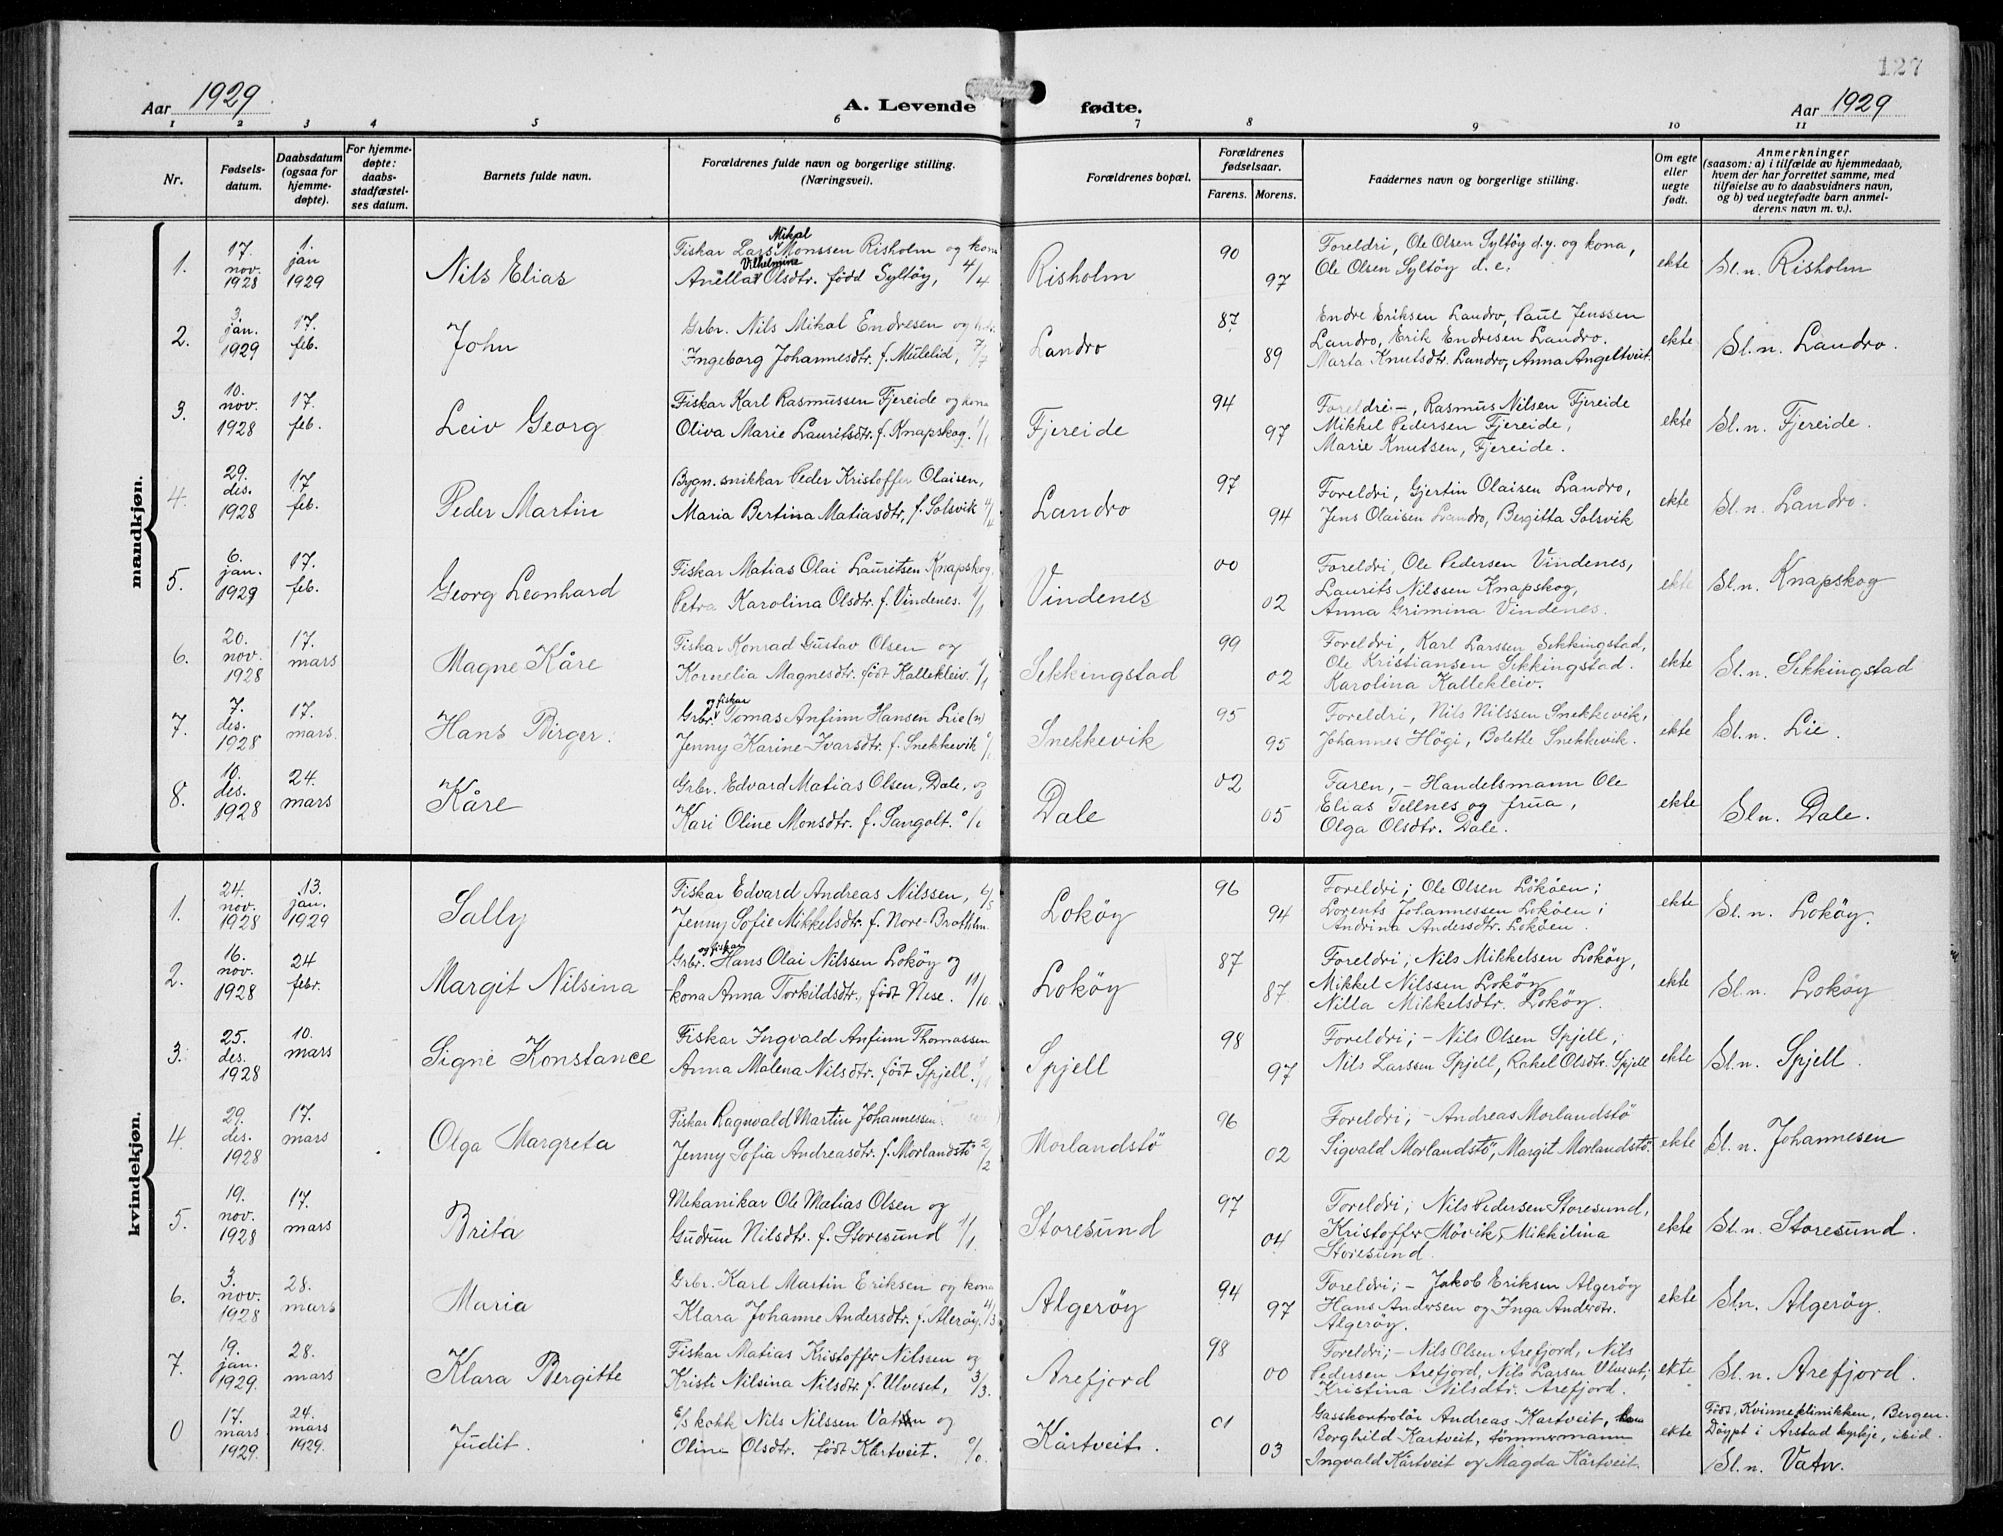 127
Aar 1929.
A. Levende fødte.
Aar 1929
1 2 3 4 5 6 7 8 9 10 11
Nr.
Fødsels-
datum.
Daabsdatum
(ogsaa for
hjemme-
døpte).
For hjemme-
døpte:
daabs-
stadfæstel-
ses datum.
Barnets fulde navn.
Forældrenes fulde navn og borgerlige stilling.
(Næringsvei).
Forældrenes bopæl.
Forældrenes
fødselsaar.
Farens. Morens.
Faddernes navn og borgerlige stilling.
Om egte
eller
uegte
født.
Anmerkninger
(saasom: a) i tilfælde av hjemmedaab,
hvem der har forrettet samme, med
tilføielse av to daabsvidners navn,
og b) ved uegtefødte barn anmel-
derens navn m. v.).
mandkjøn.
1.
17.
nov.
1928
1.
jan
1929
Nils Elias
Fiskar Lars Mikal Monssen Risholm og kona
Anëlla Vilhelmina Olsdtr. född Syltöy, 4/4
Risholm
90
97
Foreldri, Ole Olsen Syltöy d.y. og kona,
Ole Olsen Syltöy d. e.
ekte
Sl. n. Risholm
2.
3.
jan.
1929
17.
feb.
John
Grbr. Nils Mikal Endresen og
Ingeborg Johannesdtr. f. Mulelid, 7/7
Landro
87
89
Endre Eriksen Landro, Paul Jenssen
Landro, Erik Endresen Landro.
Marta Knutsdtr. Landro, Anna Angeltveit.
ekte
Sl. n. Landro.
3.
10.
nov.
1928
17.
feb.
Leiv Georg
Fiskar Karl Rasmussen Fjereide og kona
Oliva Marie Lauritsdtr. f. Knapskog. 1/1
Fjereide
94
97
Foreldri -, Rasmus Nilsen Fjereide
Mikkel Pedersen Fjereide,
Marie Knutsen, Fjereide.
ekte
Sl. n. Fjereide.
4.
29.
des.
1928
17
feb.
Peder Martin
Bygn. snikkar Peder Kristoffer Olaisen,
Maria Bertina Matiasdtr, f. Solsvik 4/4
Landro
97
94
Foreldri, Gjertin Olaisen Landro,
Jens Olaisen Landro, Bergitta Solsvik
ekte
Sl. n. Landro.
5.
6.
jan.
1929
17.
feb.
Georg Leonhard
Fiskar Matias Olai Lauritsen Knapskog.
Petra Karolina Olsdtr. f. Vindenes. 1/1
Vindenes
00
02
Foreldri, Ole Pedersen Vindenes,
Laurits Nilssen Knapskog,
Anna Grimina Vindenes.
ekte
Sl. n. Knapskog
6.
20.
nov.
1928
17.
mars
Magne Kåre
Fiskar Konrad Gustav Olsen og
Kornelia Magnesdtr. født Kallekleiv. 1/1
Sekkingstad
99
02
Foreldri, Karl Larssen Sekkingstad,
Ole Kristiansen Sekkingstad.
Karolina Kallekleiv.
ekte
Sl. n. Sekkingstad
7.
7.
des.
1928
17.
mars.
Hans Birger.
Grbr. og fiskar Tomas Anfinn Hansen Lie (n)
Jenny Karine Ivarsdtr. f. Snekkevik
Snekkevik
95
95
Foreldri, Nils Nilssen Snekkevik,
Johannes Högi, Bolette Snekkevik.
ekte
Sl. n. Lie.
8.
10.
des.
1928
24.
mars
Kåre
Grbr. Edvard Matias Olsen, Dale, og
Kari Oline Monsdtr. f. Sangolt. 0/1
Dale
02
05
Faren, - Handelsmann Ole
Elias Tellnes og frua,
Olga Olsdtr. Dale.
ekte
Sl n. Dale.
kvindekjøn.
1.
24.
nov.
1928
13.
jan.
1929
Sally
Fiskar Edvard Andreas Nilssen, 6/5
Jenny Sofie Mikkelsdtr. f. Nore-Brattholm.
Loköy
96
94
Foreldri; Ole Olsen Lököen;
Lorents Johannessen Loköen;
Andrina Andersdtr. Loköen.
ekte
Sl. n. Loköy.
2.
16.
nov.
1928
24
febr.
Margit Nilsina
Grbr. og fiskar Hans Olai Nilssen Loköy og
kona Anna Torkildsdtr., født Nese. 11/10
Loköy
87
87
Foreldri; Nils Mikkelsen Loköy,
Mikkel Nilssen Loköy
Nilla Mikkelsdtr. Loköy.
ekte
Sl. n. Loköy
3.
25.
des.
1928
10.
mars
Signe Konstance
Fiskar Ingvald Anfinn Thomassen
Anna Malena Nilsdtr. født Spjell.
Spjell
98
97
Foreldri; - Nils Olsen Spjell;
Nils Larssen Spjell, Rakel Olsdtr. Spjell
ekte
Sl. n. Spjell.
4.
29.
des.
1928
17.
mars
Olga Margreta
Fiskar Ragnvald Martin Johannessen.
Jenny Sofia Andreasdtr. f. Morlandstö 2/2
Morlandstö
96
02
Foreldri; - Andreas Morlandstö
Sigvald Morlandstö, Margit Morlandstö.
ekte
Sl. n. Johannesen
5.
19.
nov.
1928
17.
mars
Brita
Mekanikar Ole Matias Olsen og
Gudrun Nilsdtr. f. Storesund 1/1.
Storesund
97
04
Foreldri; Nils Pedersen Storesund,
Kristoffer Mövik, Mikkelina
Storesund.
ekte
Sl. n. Storesund.
6.
3.
nov.
1928
28.
mars
Maria
Grbr. Karl Martin Eriksen og kona
Klara Johanne Andersdtr. f. Alerøy. 4/3
Algeröy
94
97
Foreldri; - Jakob Eriksen Algeröy
Hans Andersen og Inga Andersdtr.
Algeröy.
ekte
Sl. n. Algeröy.
7
19.
jan.
1929.
28.
mars
Klara Bergitte
Fiskar Matias Kristoffer Nilssen og
Kristi Nilsina Nilsdtr. f. Ulveset, 3/3.
Arefjord
98
00
Foreldri; - Nils Olsen Arefjord, Nils
Pedersen Arefjord, Nils Larsen Ulveset;
Kristina Nilsdtr. Arefjord.
ekte
Sl. n. Arefjord.
0
17.
mars
1929.
24.
mars
1929.
Judit.
E/s kokk Nils Nilssen Vatn og
Oline Olsdtr. født Kårtveit. 0/0.
Kårtveit.
01
03
Gasskontrolör Andreas Kartveit, kona
Borghild Kartveit, tömmermann
Ingvald Kårtveit og Magda Kårtveit.
ekte
Født, Kvinneklinikken, Bergen.
Döypt i Årstad kyrkje, ibid.
Sl. n. Vatn.